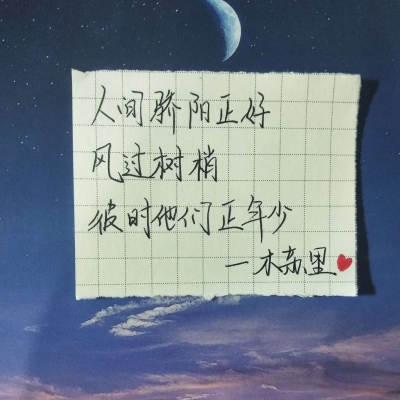 人间骄阳正好
风过树梢
彼时他们正年少
—木苏里